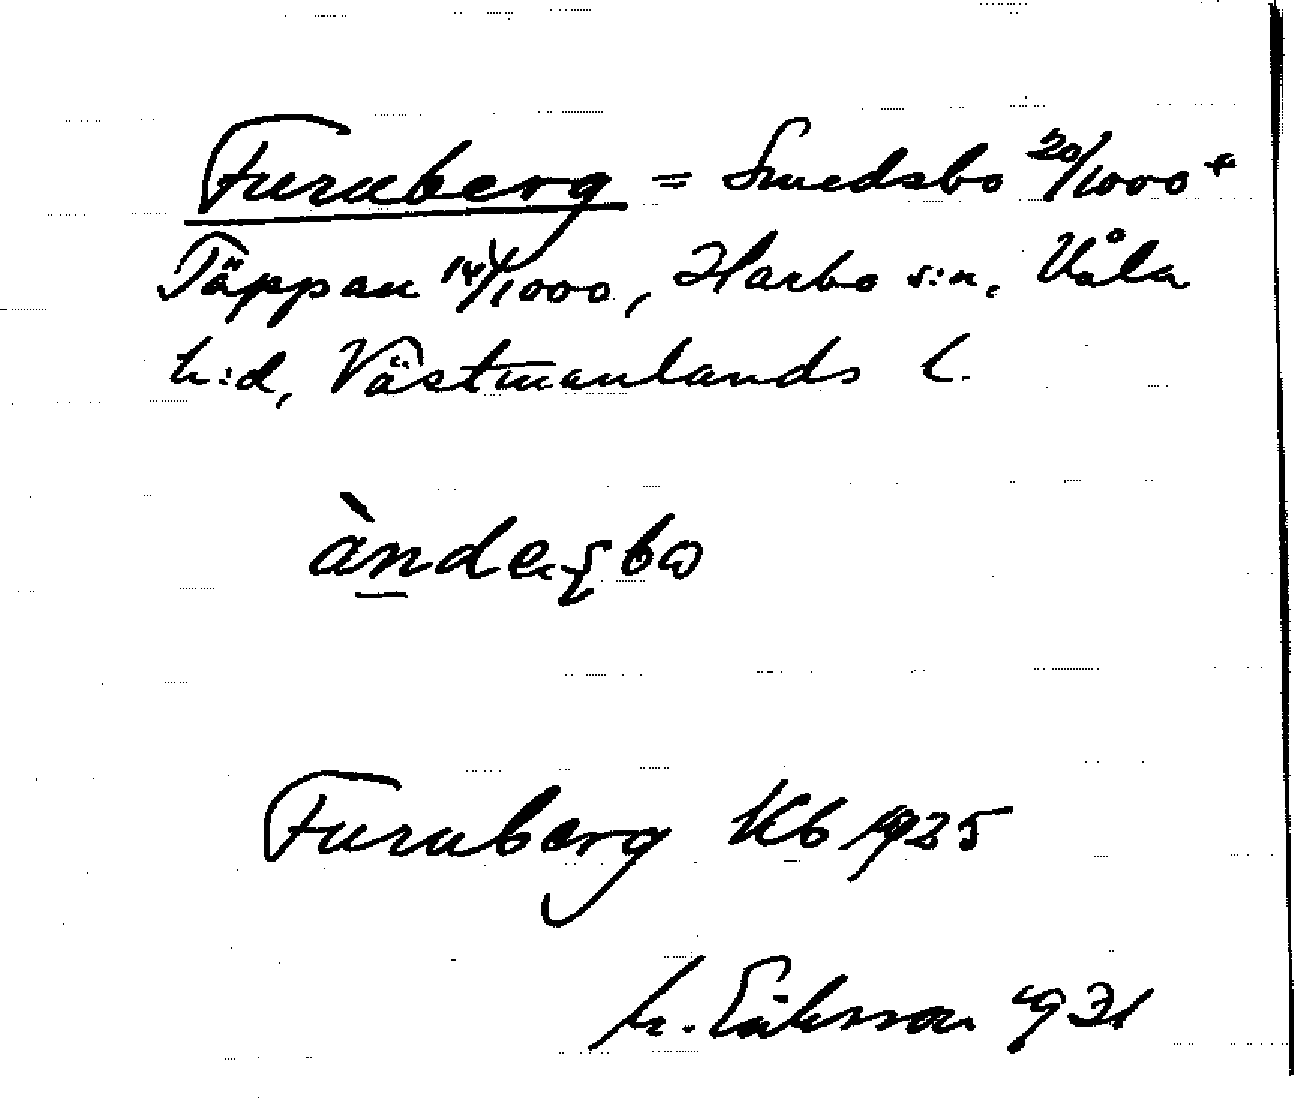 Furuberg = Smedsbo 20/1000 +
Täppan 14/1000, Harbo s:n, Våla
h:d, Västmanlands l.
ànde
Furuberg Kb 1925
M. Eriksson 1931